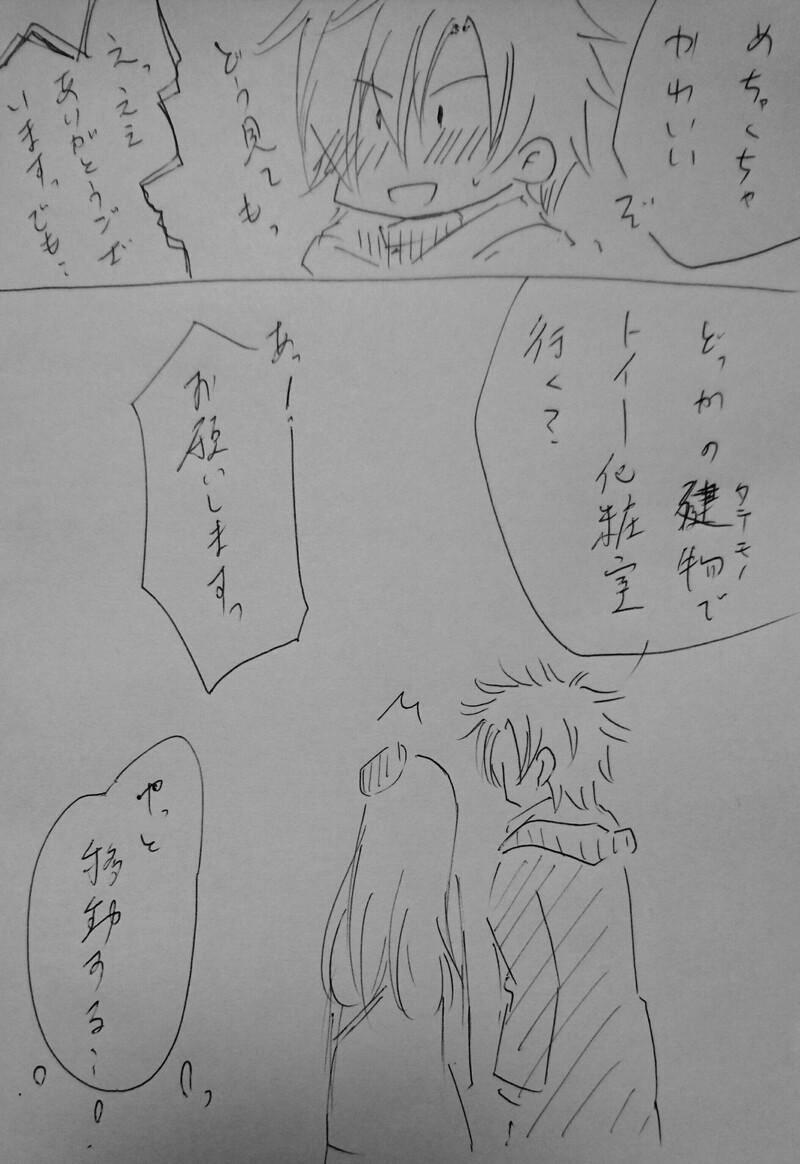 めちゃくちゃ
かわいい
ぞ
どう見てもっ
えっええ
ありがとうござ
いますっでも…
どっかの建物で
タテモノ
トイー化粧室
行く?
あっ!
お願いしますっ
やっと
移動する…